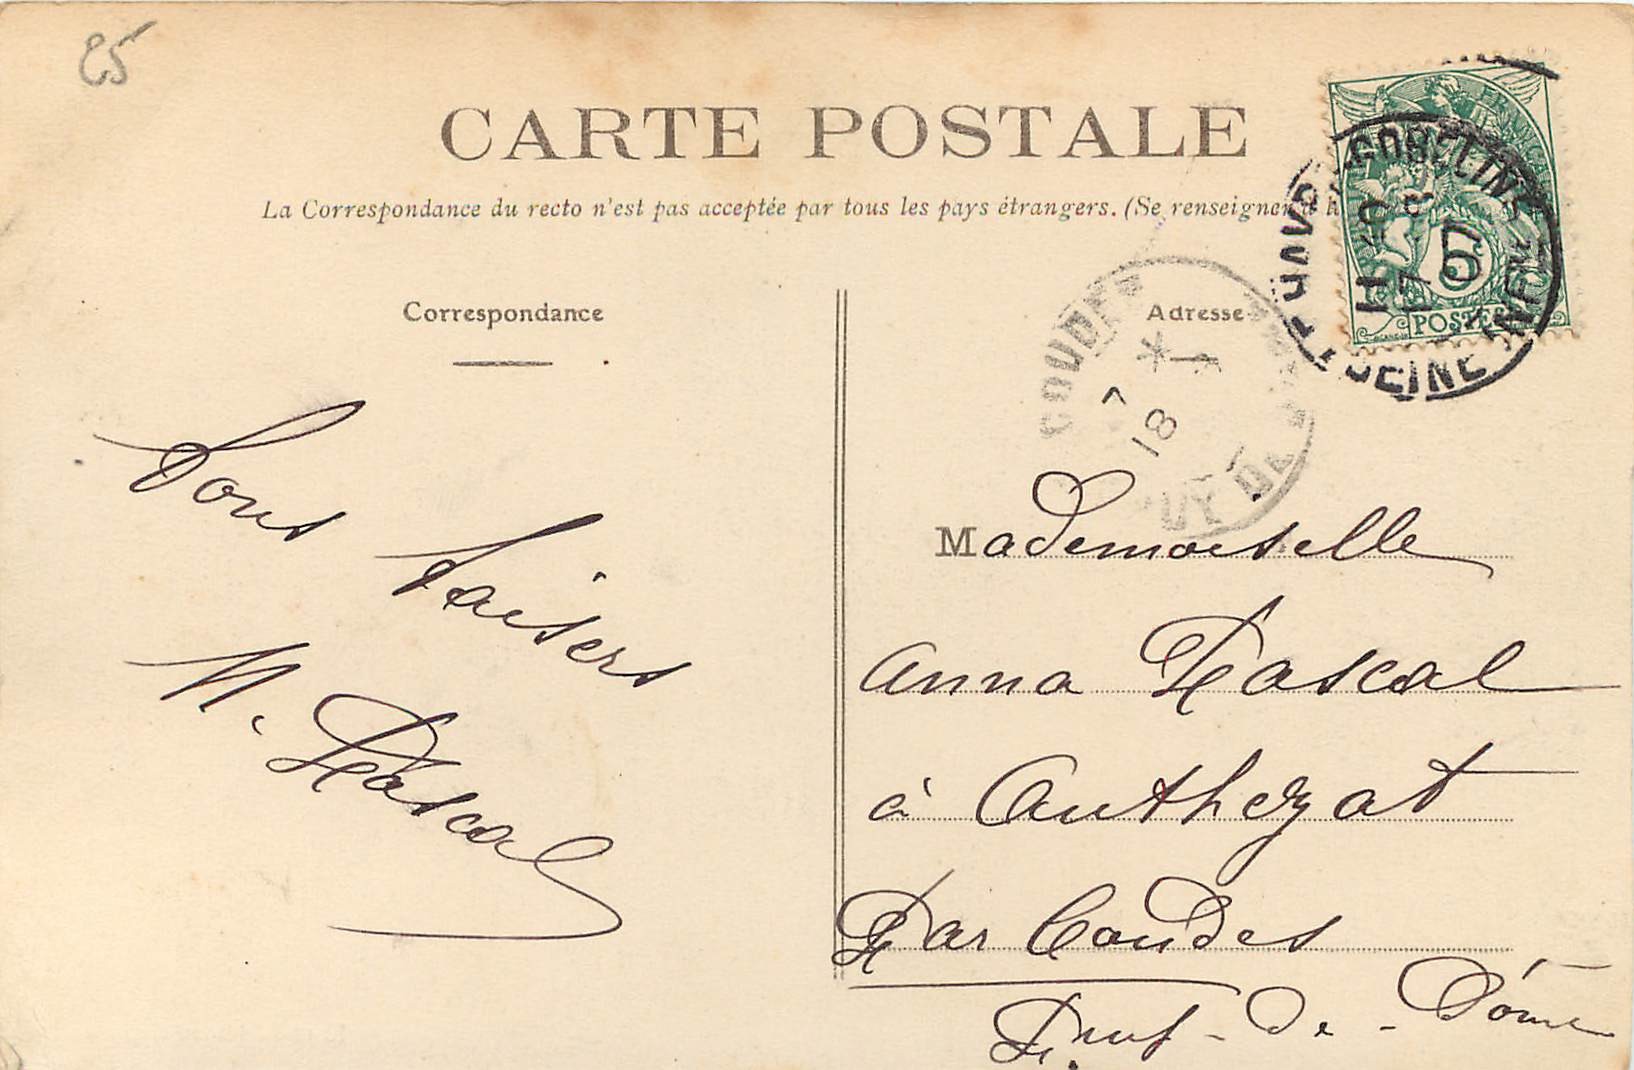 25
CARTE POSTALE
La Correspondance du recto n'est pas acceptée par tous les pays étrangers. (Se renseigner à
Correspondance
Adresse
FRANÇAISE
5
POSTES
GOBELINS
SEINE
COUDES
PUY DE
* 1
7
18
bons baisers
M. Pascal
Mademoiselle
Anna Pascal
à Authezat
Par Coudes
Puy-de-Dôme